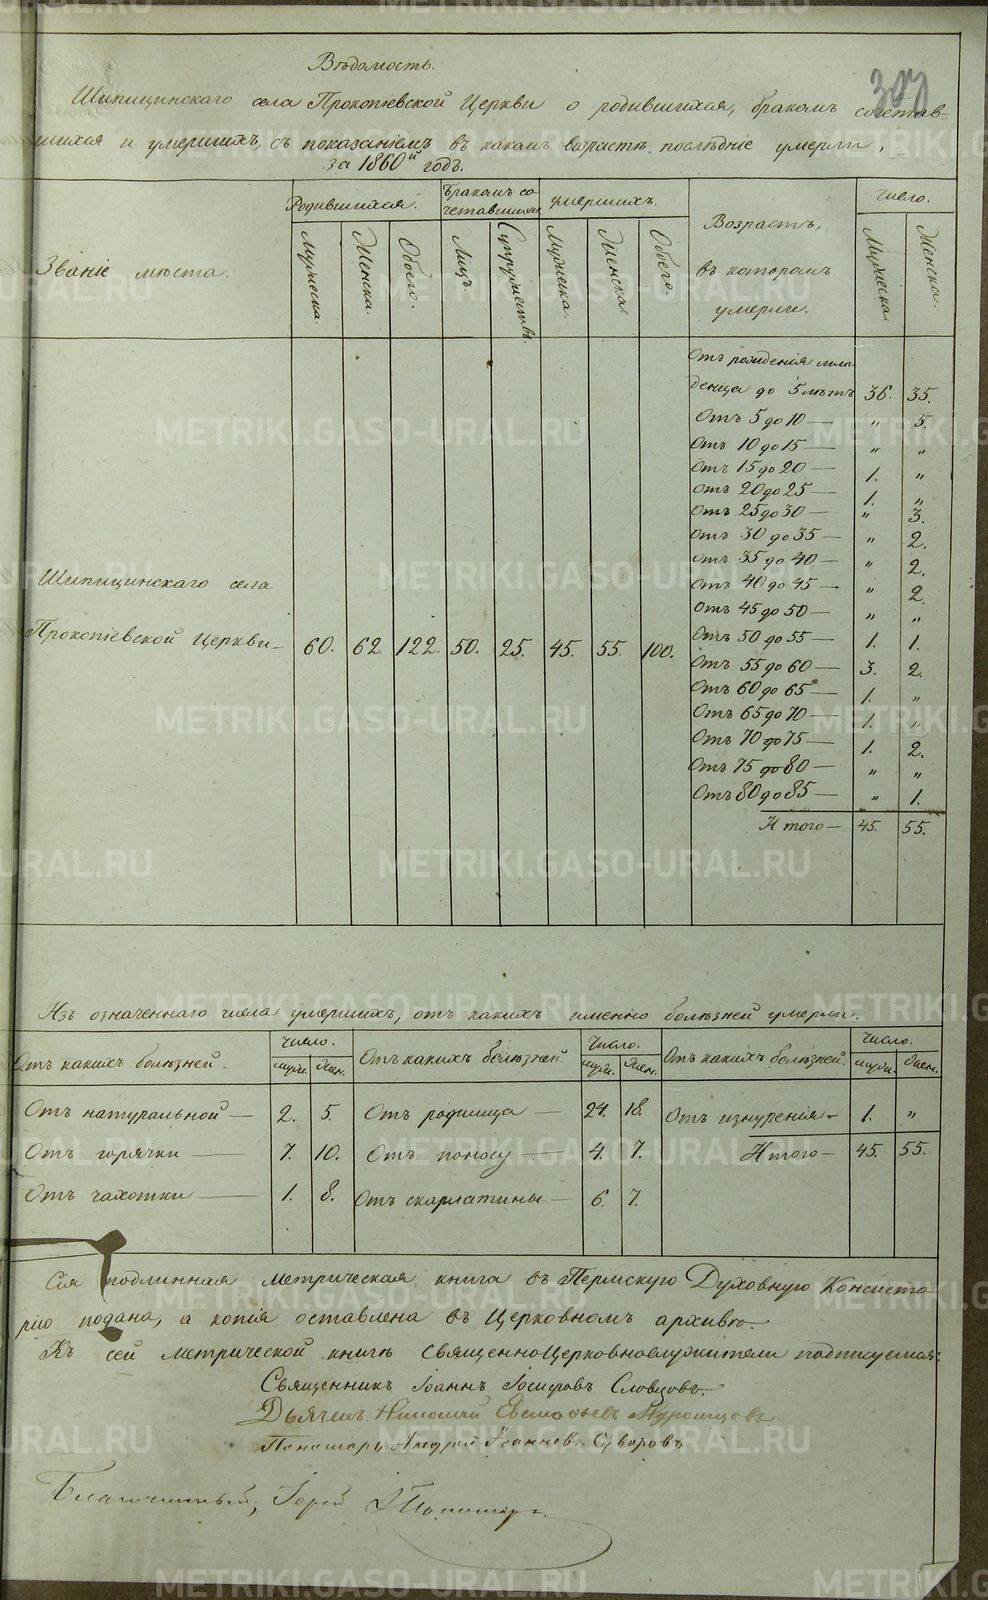 Вѣдомость.
Шипицинскаго села Прокопіевской Церкви о родившихся, бракомъ сочетав-
шихся и умершихъ, съ показаніемъ въ какомъ возрастѣ послѣдніе умерли,
за 1860й годъ.
Званіе мѣста.
Родившихся.
Бракомъ со-
четавшихся
умершихъ.
Возрастъ,
въ которомъ
умерли.
Число.
Мужеска.
Женска.
Обоего.
Лицъ.
Супружествъ.
Мужеска.
Женска
Обоего.
Мужеска
Женска.
Отъ рожденія мла-
денца до 5 лѣтъ 36. 35.
Отъ 5 до 10 — „ 5.
Отъ 10 до 15 — „ „
Отъ 15 до 20 — 1. „
Отъ 20 до 25 — 1. „
Отъ 25 до 30 — „ 3.
Отъ 30 до 35 — „ 2.
Отъ 35 до 40 — „ 2.
Отъ 40 до 45 — „ 2.
Отъ 45 до 50 — „ „
Отъ 50 до 55 — 1. 1.
Отъ 55 до 60 — 3. 2.
Отъ 60 до 65 — 1. „
Отъ 65 до 70 — 1. „
Отъ 70 до 75 — 1. 2.
Отъ 75 до 80 — „ „
Отъ 80 до 85 — „ 1.
Итого — 45. 55.
Шипицинскаго села
Прокопіевской Церкви — 60. 62. 122. 50. 25. 45. 55. 100.
Изъ означеннаго числа умершихъ, отъ какихъ именно болѣзней умерли.
Отъ какихъ болѣзней. Число. муж. жен. Отъ какихъ болѣзней. Число. муж. жен. Отъ какихъ болѣзней. Число. муж. жен.
Отъ натуральной — 2. 5. Отъ родимца — 24. 18. Отъ изнуренія — 1. „
Отъ горячки — 7. 10. Отъ поносу — 4. 7. Итого — 45. 55.
Отъ чахотки — 1. 8. Отъ скарлатины — 6. 7.
Сія подлинная метрическая книга въ Пермскую Духовную Консисто-
рію подана, а копія оставлена въ Церковномъ архивѣ.
Къ сей метрической книгѣ Священноцерковнослужители подписуемся:
Священникъ Іоаннъ Іосифовъ Словцовъ.
Дьячекъ Николай
Пономарь Андрей Іоанновъ Суворовъ
Благочинный, Іерей
METRIKI.GASO-URAL.RU